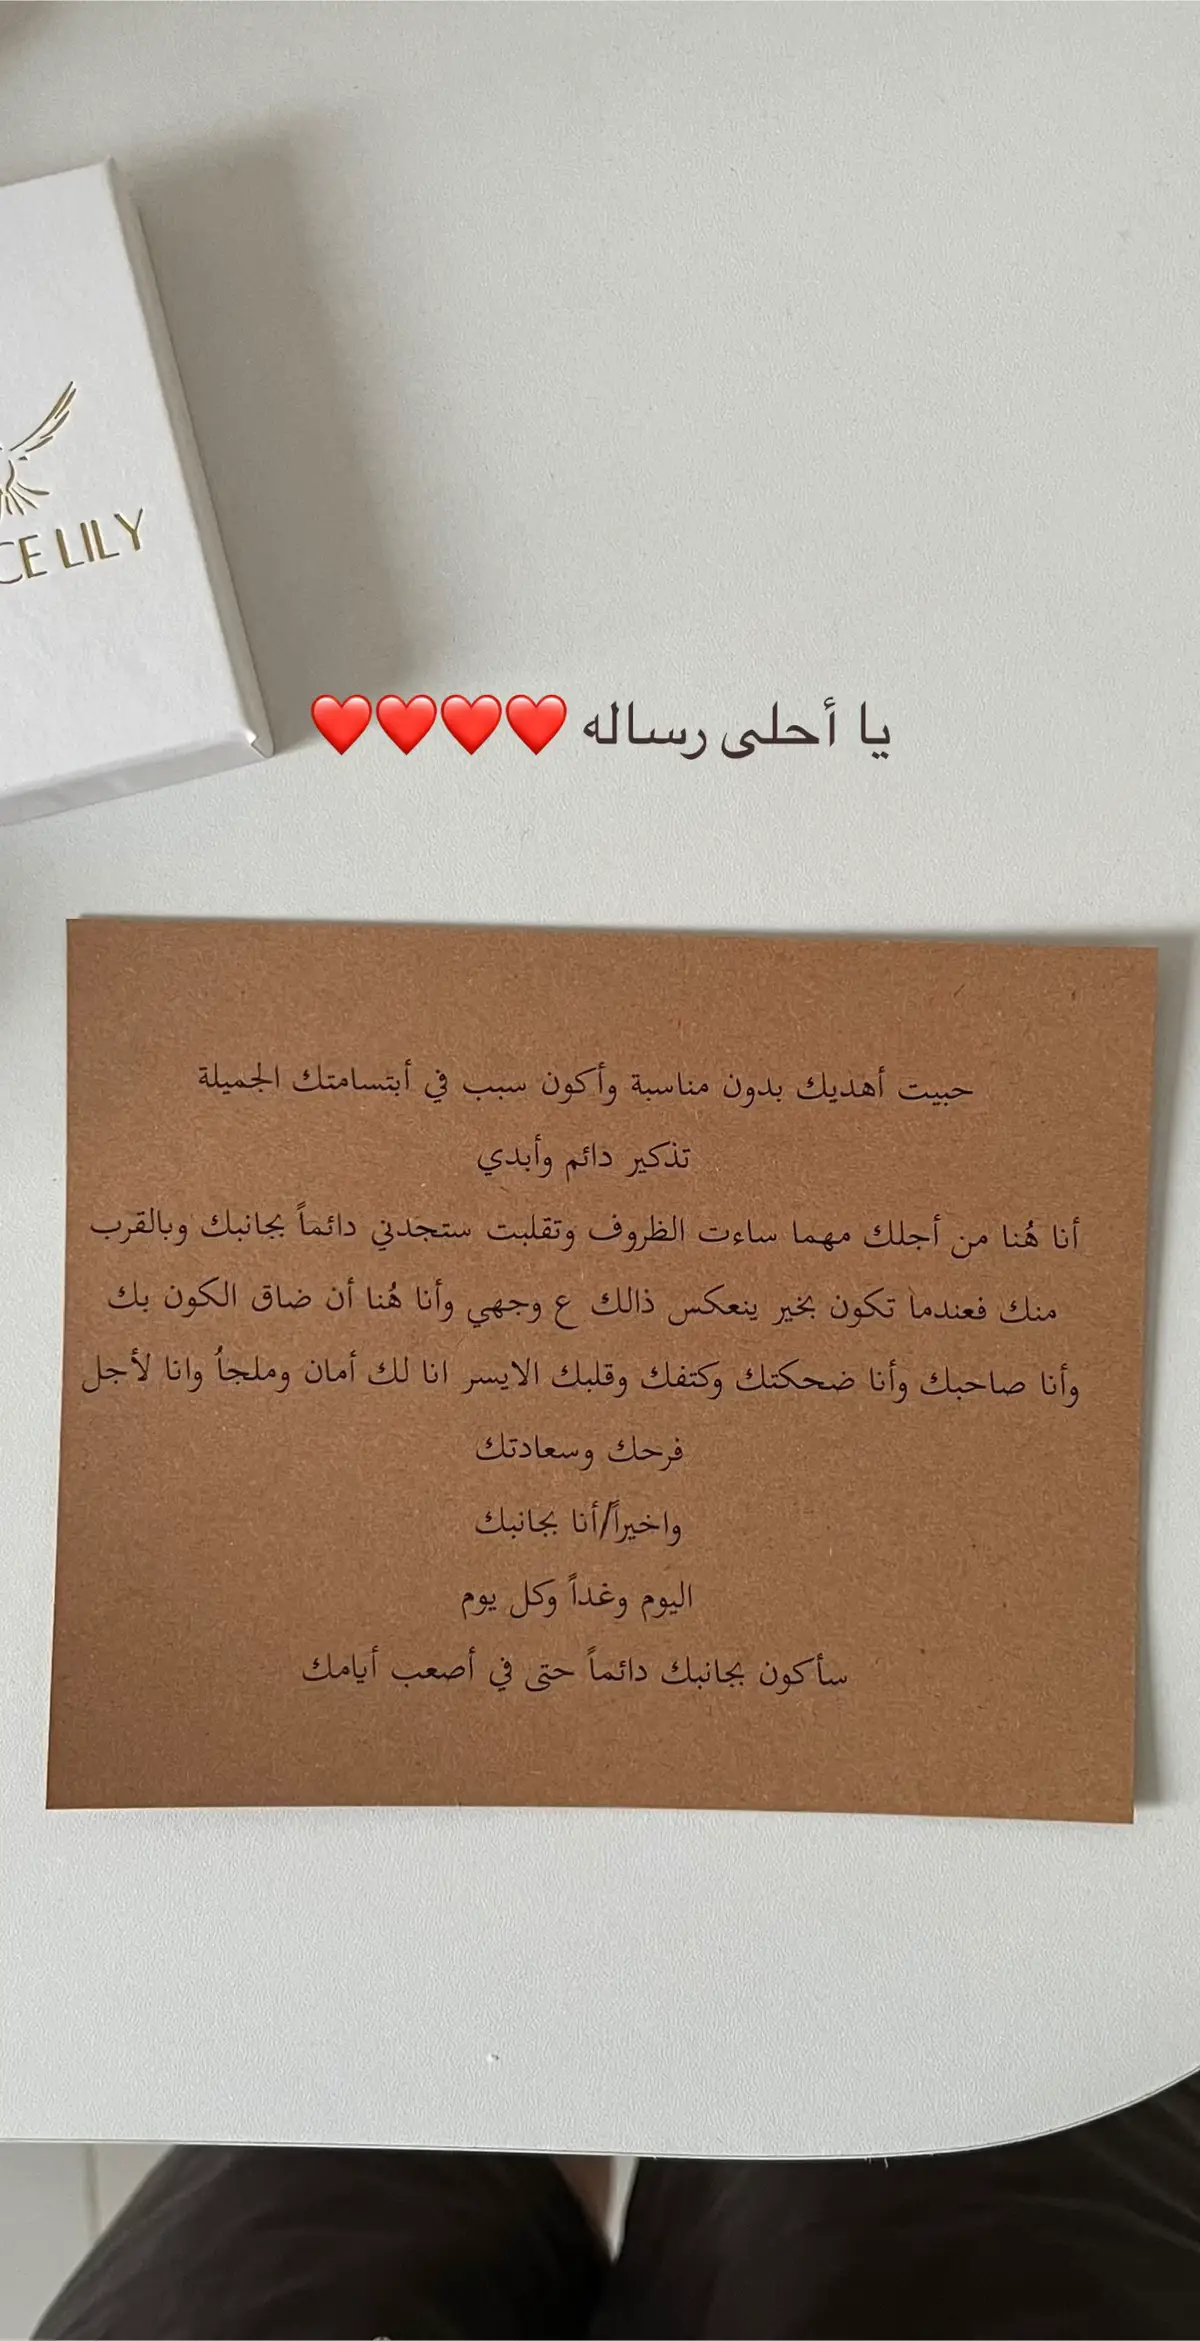 CE LILY
يا أحلى رساله ❤️❤️❤️❤️
حبيت أهديك بدون مناسبة وأكون سبب في أبتسامتك الجميلة
تذكير دائم وأبدي
أنا هُنا من أجلك مهما ساءت الظروف وتقلبت ستجدني دائماً بجانبك وبالقرب
منك فعندما تكون بخير ينعكس ذالك ع وجهي وأنا هُنا أن ضاق الكون بك
وأنا صاحبك وأنا ضحكتك وكتفك وقلبك الايسر انا لك أمان وملجاُ وانا لأجل
فرحك وسعادتك
واخيراً/أنا بجانبك
اليوم وغداً وكل يوم
سأكون بجانبك دائماً حتى في أصعب أيامك